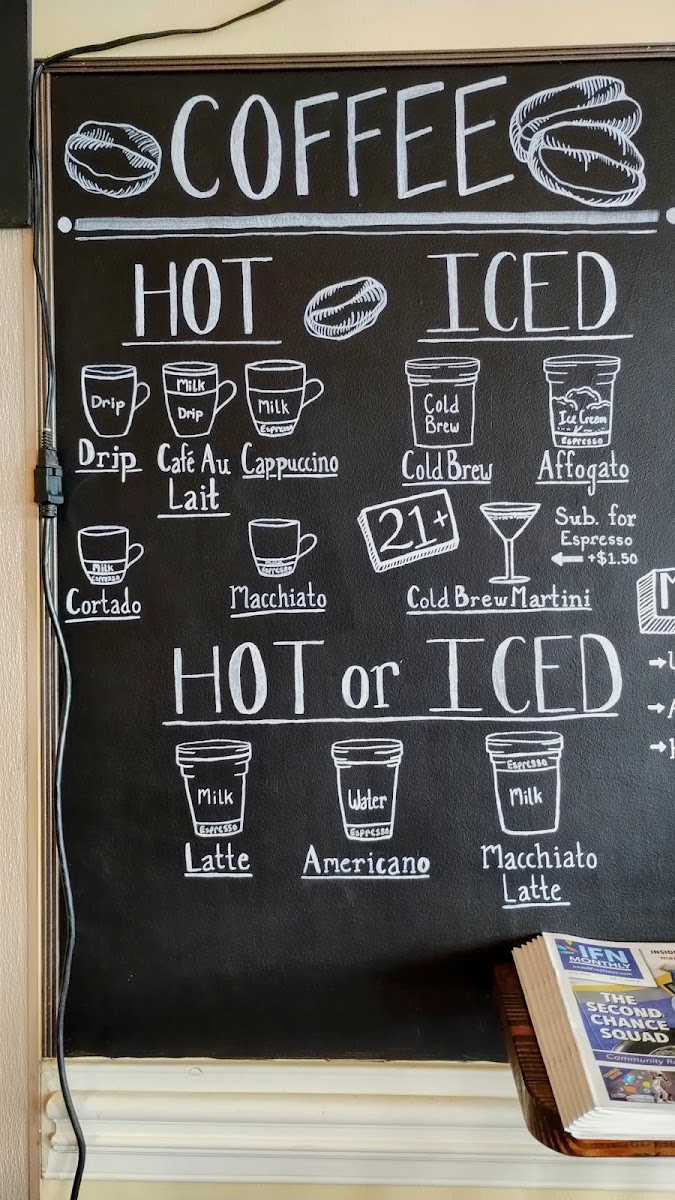 COFFEE
HOT
ICED
Drip
Milk
Drip
Milk
Espresso
Cold
Brew
Ice Cream
Espresso
Drip
Café Au
Lait
Cappuccino
Cold Brew
Affogato
Milk
Espresso
Milk
Espresso
21+
Sub. for
Espresso
+$1.50
Cortado
Macchiato
Cold Brew Martini
HOT or ICED
Milk
Espresso
Water
Espresso
Espresso
Milk
Latte
Americano
Macchiato
Latte
IFN
MONTHLY
THE
SECOND
CHANCE
SQUAD
Community